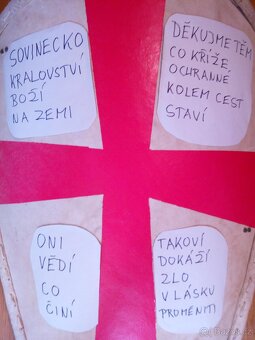 SOVINECKO
KRALOVSTVÍ
BOŽÍ
NA ZEMI
DĚKUJME TĚM
CO KŘÍŽE
OCHRANNÉ
KOLEM CEST
STAVÍ
ONI
VĚDÍ
CO
ČINÍ
TAKOVÍ
DOKÁŽÍ
ZLO
V LÁSKU
PROMĚNITI